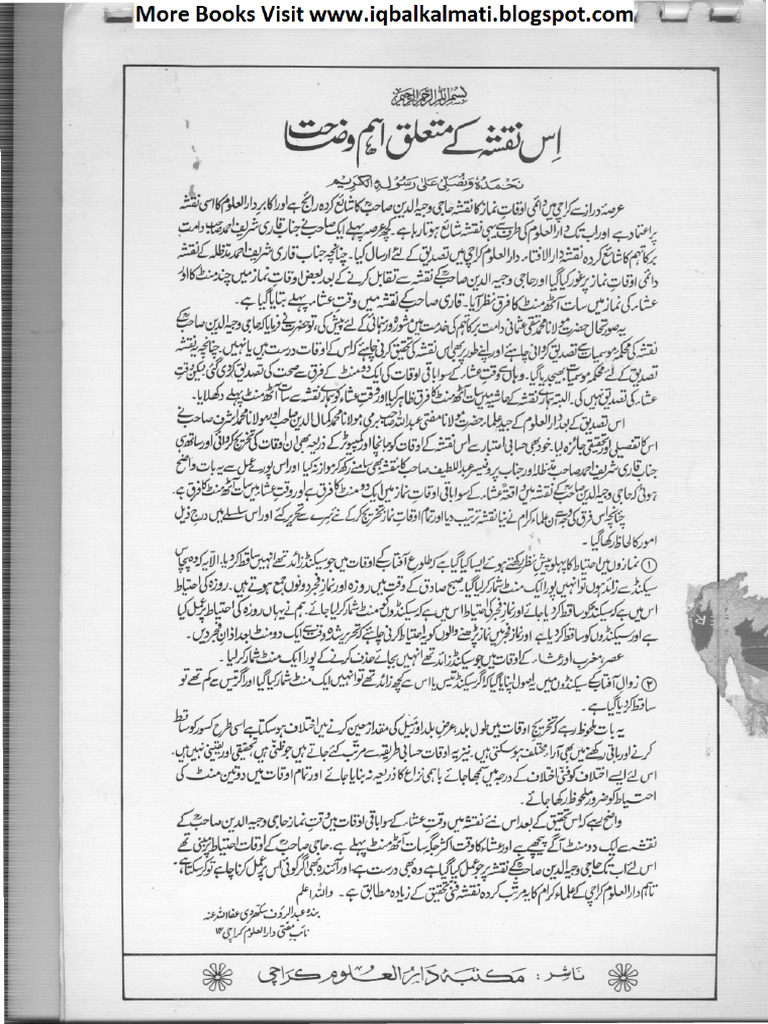 More Books Visit www.iqbalkalmati.blogspot.com
بسم اللہ الرحمٰن الرحیم
اِس نقشہ کے متعلق اہم وضاحت
نَحْمَدُہٗ وَنُصَلِّی عَلٰی رَسُوْلِہِ الْکَرِیْم
عرصۂ دراز سے کراچی میں دائمی اوقاتِ نماز کا نقشہ حاجی وجیہ الدین صاحبؒ کا شائع کردہ رائج ہے اور اکابر دار العلوم کا اسی نقشہ
پر اعتماد ہے اور اب تک دار العلوم کی طرف سے یہی نقشہ شائع ہوتا رہا ہے۔ کچھ عرصہ پہلے ایک صاحب نے جناب قاری شریف احمد صاحب دامت
برکاتہم کا شائع کردہ نقشہ دار الافتاء دار العلوم کراچی میں تصدیق کے لئے ارسال کیا۔ چنانچہ جناب قاری شریف احمد مدظلہ کے نقشہ
دائمی اوقاتِ نماز پر غور کیا گیا اور حاجی وجیہ الدین صاحبؒ کے نقشہ سے تقابل کرنے کے بعد بعض اوقاتِ نماز میں چند منٹ کا اور
عشاء کی نماز میں سات آٹھ منٹ کا فرق نظر آیا۔ قاری صاحب کے نقشہ میں وقتِ عشاء پہلے بتایا گیا ہے۔
یہ صورتحال حضرت مولانا محمد تقی عثمانی دامت برکاتہم کی خدمت میں مشورہ و رہنمائی کے لئے پیش کی، تو حضرت نے فرمایا کہ حاجی وجیہ الدین صاحبؒ کے
نقشہ کی محکمہ موسمیات سے تصدیق کروانی چاہئے اور اپنے طور پر بھی اس نقشہ کی تحقیق کرنی چاہئے کہ اس کے اوقات درست ہیں یا نہیں چنانچہ یہ نقشہ
تصدیق کے لئے محکمہ موسمیات بھیجدیا گیا۔ وہاں سے وقتِ عشاء کے سوا باقی اوقات کی ایک دو منٹ کے فرق سے صحت کی تصدیق کر دی گئی لیکن وقتِ
عشاء کی تصدیق نہیں کی۔ البتہ ہمارے نقشہ کے حاشیہ میں سات آٹھ منٹ کا فرق ظاہر کیا اور وقتِ عشاء کو ہمارے نقشہ سے سات آٹھ منٹ پہلے دکھلایا۔
اس تصدیق کے بعد دار العلوم کے جید علماء حضرت مولانا مفتی عبداللہ صاحب برمی مولانا محمد کمال الدین صاحب اور مولانا محمد اشرف صاحب نے
اس کا تفصیلی اور تحقیقی جائزہ لیا۔ خود بھی حسابی اعتبار سے اس نقشہ کے اوقات کو جانچا اور کمپیوٹر کے ذریعہ بھی ان اوقات کی تخریج کروائی اور ساتھ ہی
جناب قاری شریف احمد صاحب مدظلہ اور جناب پروفیسر عبداللطیف صاحب کا نقشہ بھی سامنے رکھ کر موازنہ کیا اور اس پورے عمل سے یہ بات واضح
ہوئی کہ حاجی وجیہ الدین صاحبؒ کے نقشہ میں واقعۃً عشاء کے سوا باقی اوقاتِ نماز میں ایک دو منٹ کا فرق ہے اور وقتِ عشاء میں سات آٹھ منٹ کا فرق ہے۔
چنانچہ اس فرق کی وجہ سے ان علماء کرام نے نیا نقشہ ترتیب دیا اور تمام اوقاتِ نماز تخریج کر کے نئے سرے سے تحریر کئے اور اس سلسلے میں درج ذیل
امور کا لحاظ رکھا گیا۔
① نمازوں میں احتیاط کا پہلو پیش نظر رکھتے ہوئے ایسا کیا گیا ہے کہ طلوع آفتاب کے اوقات میں جو سیکنڈ زائد تھے انہیں ساقط کر دیا۔ الّا یہ کہ وہ پچاس
سیکنڈ سے زائد ہوں تو انہیں پورا ایک منٹ شمار کر لیا گیا۔ صبح صادق کے وقت میں روزہ اور نماز فجر دونوں جمع ہوتے ہیں۔ روزہ کی احتیاط
اس میں ہے کہ سیکنڈ کو ساقط کر دیا جائے اور نمازِ فجر کی احتیاط اس میں ہے کہ سیکنڈ کو مکمل منٹ شمار کر لیا جائے۔ ہم نے یہاں روزہ کی احتیاط پر عمل کیا
ہے اور سیکنڈوں کو ساقط کر دیا ہے اور نماز فجر میں نماز پڑھنے والوں کو یہ احتیاط کرنی چاہئے کہ تحریر شدہ وقت سے ایک دو منٹ بعد اذانِ فجر دیں۔
عصر، مغرب اور عشاء کے اوقات میں جو سیکنڈ زائد تھے انہیں بجائے حذف کرنے کے پورا ایک منٹ شمار کر لیا۔
② زوالِ آفتاب کے سیکنڈوں میں یہ اصول اپنایا گیا کہ اگر سیکنڈ تیس یا اس سے کچھ زائد تھے تو انہیں ایک منٹ شمار کیا گیا اور اگر تیس سے کم تھے تو
ساقط کر دیا گیا ہے۔
یہ بات ملحوظ رہے کہ تخریج اوقات میں طول بلد، عرض بلد اور میل کی مقدار معین کرنے میں اختلاف ہو سکتا ہے اسی طرح کسور کو ساقط
کرنے اور باقی رکھنے میں بھی آراء مختلف ہو سکتی ہیں۔ نیز یہ اوقات حسابی طریقہ سے مرتب کئے جاتے ہیں جو ظنی ہیں، تحقیقی اور یقینی نہیں ہیں۔
اس لئے ایسے اختلاف کو فنی اختلاف کے درجہ میں سمجھا جائے باہمی نزاع کا ذریعہ نہ بنایا جائے اور تمام اوقات میں دو تین منٹ کی
احتیاط کو ضرور ملحوظ رکھا جائے۔
واضح رہے کہ اس تحقیق کے بعد اس نئے نقشہ میں وقتِ عشاء کے سوا باقی اوقات میں وقتِ نماز حاجی وجیہ الدین صاحبؒ کے
نقشہ سے ایک دو منٹ آگے پیچھے ہے اور عشاء کا وقت اکثر جگہ سات آٹھ منٹ پہلے ہے۔ حاجی صاحبؒ کے اوقات احتیاط پر مبنی تھے
اس لئے اب تک حاجی وجیہ الدین صاحبؒ کے نقشہ پر جو عمل کیا گیا ہے وہ بھی درست ہے، اور آئندہ بھی اگر کوئی اس پر عمل کرنا چاہے تو کر سکتا ہے،
تاہم دار العلوم کراچی کے علماء کرام کا یہ مرتب کردہ نقشہ فنی تحقیق کے زیادہ مطابق ہے۔ واللہ اعلم
بندہ عبدالرؤف سکھروی عفا اللہ عنہ
نائب مفتی دار العلوم کراچی ۱۴
ناشر: مکتبۂ دارالعلوم کراچی